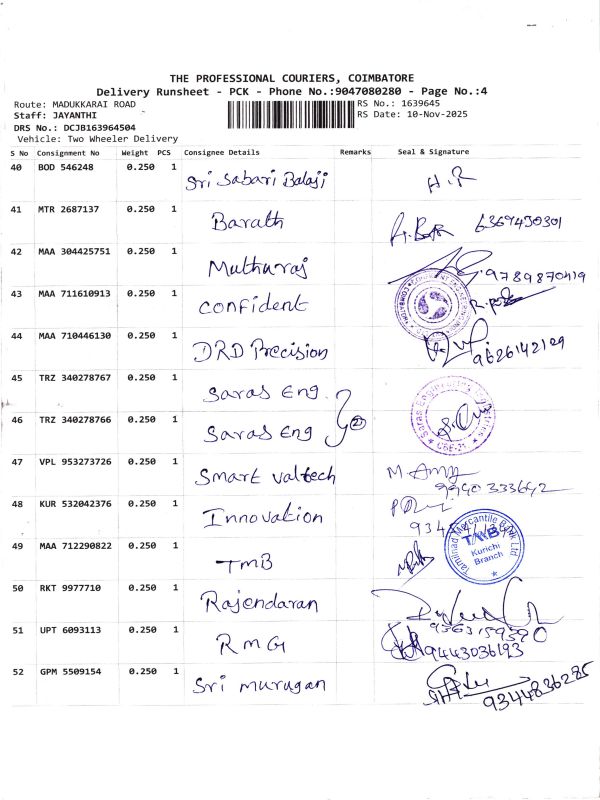 THE PROFESSIONAL COURIERS, COIMBATORE
Delivery Runsheet - PCK - Phone No.:9047080280 - Page No.:4
Route: MADUKKARAI ROAD RS No.: 1639645
Staff: JAYANTHI RS Date: 10-Nov-2025
DRS No.: DCJB163964504
Vehicle: Two Wheeler Delivery
S No Consignment No Weight PCS Consignee Details Remarks Seal & Signature
40 BOD 546248 0.250 1 Sri Sabari Balaji H.R
41 MTR 2687137 0.250 1 Barath 6369430301
42 MAA 304425751 0.250 1 Muthuraj 9789870419
43 MAA 711610913 0.250 1 Confident
44 MAA 710446130 0.250 1 DRD Precision 9626142109
45 TRZ 340278767 0.250 1 Saras Eng.
46 TRZ 340278766 0.250 1 Saras Eng CBE-21
47 VPL 953273726 0.250 1 Smart valtech 9940333642
48 KUR 532042376 0.250 1 Innovation
49 MAA 712290822 0.250 1 TMB Tamilnad Mercantile Bank Ltd
TMB
Kurichi
Branch
50 RKT 9977710 0.250 1 Rajendaran
51 UPT 6093113 0.250 1 RMG 9443036193
52 GPM 5509154 0.250 1 Sri murugan 9344836285